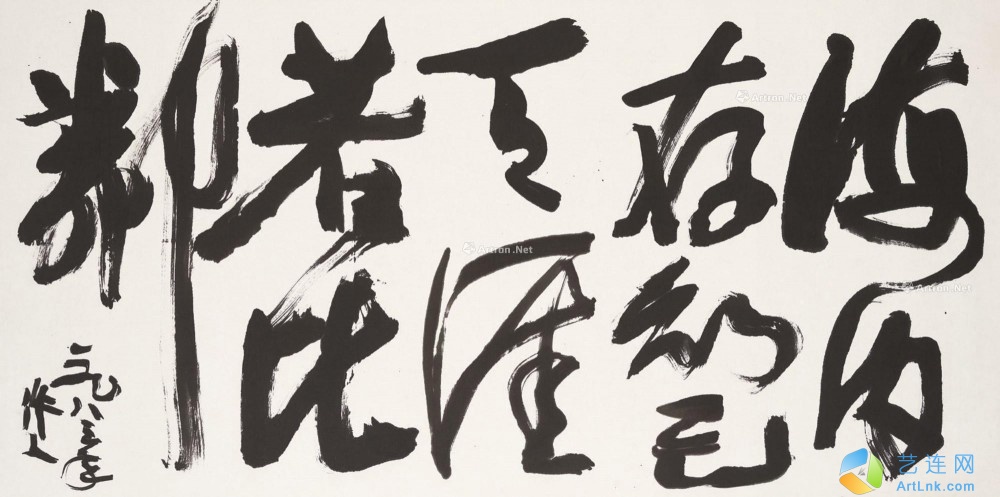 海内
存知己
天涯
若比
鄰
一九八三年
Artron.Net
Artron.Net
Artron.Net
艺连网
ArtLnk.com